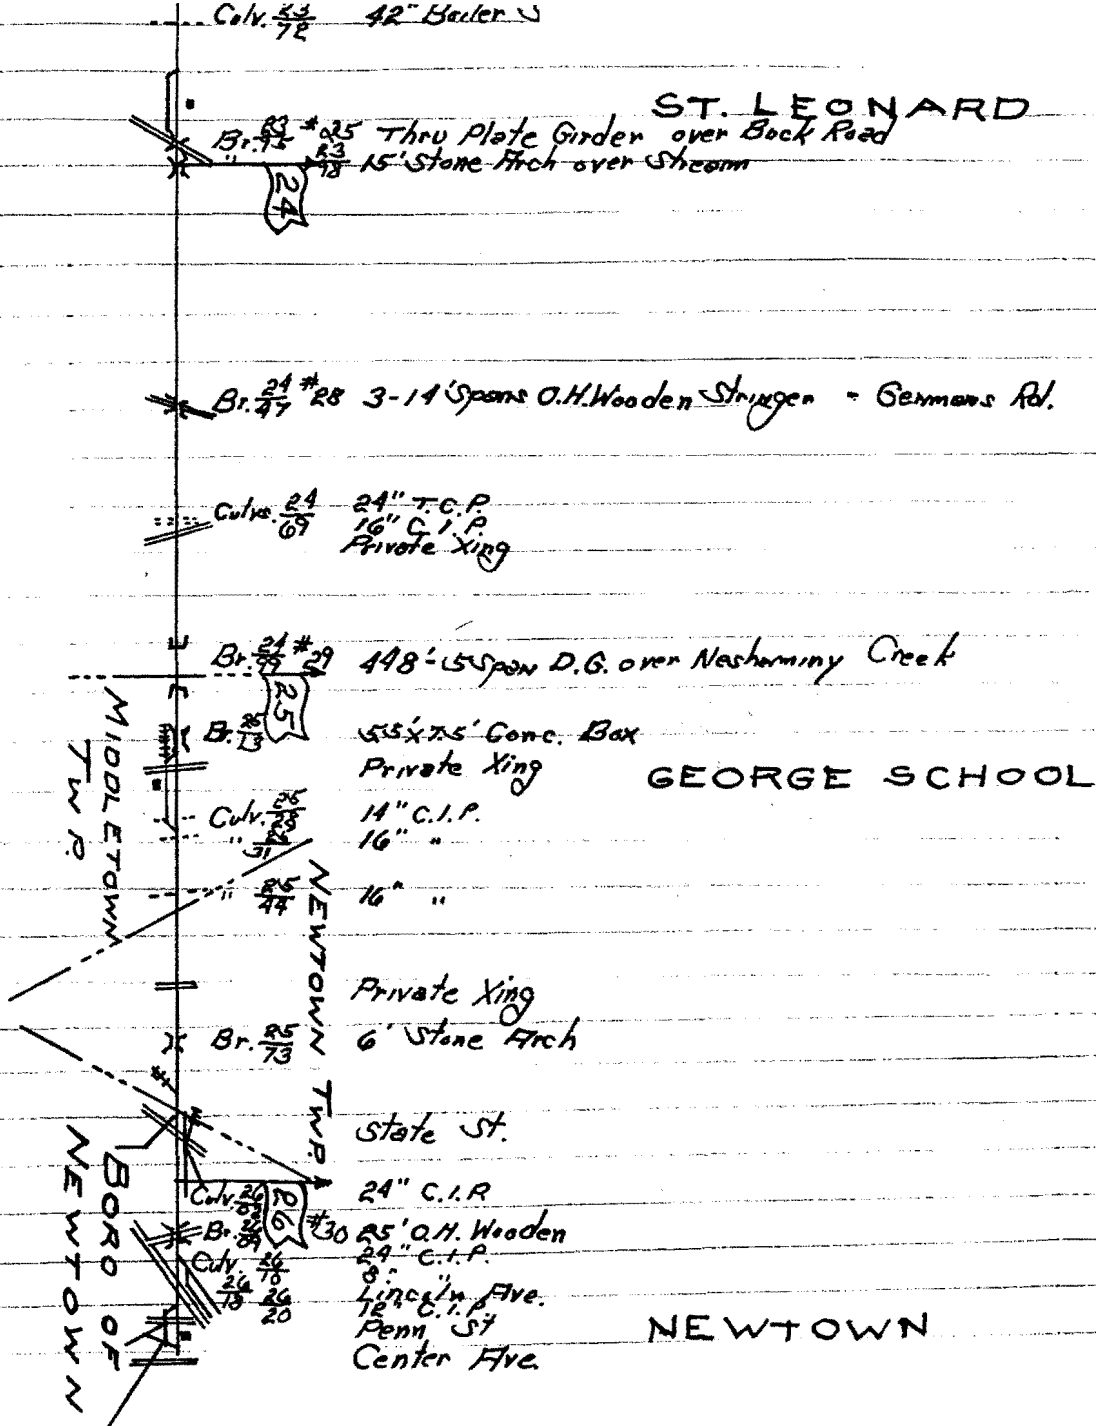 Culv. 23/72 42" Boiler
ST. LEONARD
Br. 23/95 #25 Thru Plate Girder over Buck Road
" 23/98 15' Stone Arch over Stream
24
Br. 24/47 #28 3-14' Spans O.H. Wooden Stringer - Germans Rd.
Culvs. 24/69 24" T.C.P.
16" C.I.P.
Private Xing
Br. 24/99 #29 448'-5 Span D.G. over Neshaminy Creek
25
MIDDLETOWN TWP.
Br. 25/13 5.5'x7.5' Conc. Box
Private Xing
GEORGE SCHOOL
Culv. 25/28 14" C.I.P.
" 25/31 16" "
" 25/44 16" "
NEWTOWN TWP.
Private Xing
Br. 25/73 6' Stone Arch
State St.
BORO OF NEWTOWN
Culv. 26/02 24" C.I.P.
26
Br. 26/09 #30 25' O.H. Wooden
Culv. 26/10 24" C.I.P.
26/18 8" "
Lincoln Ave.
26/20 12" C.I.P.
Penn St
NEWTOWN
Center Ave.